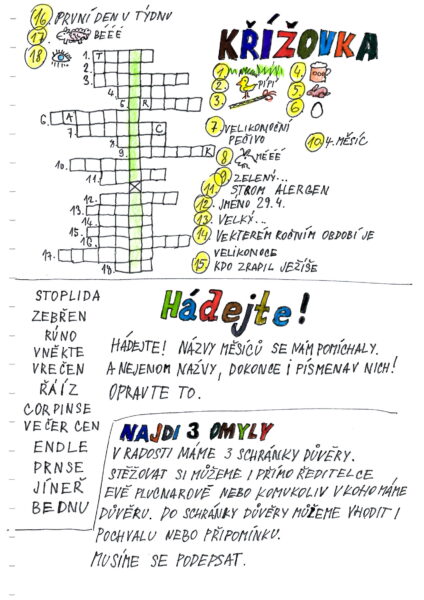 16. PRVNÍ DEN V TÝDNU
17. BÉÉÉ
18.
KŘÍŽOVKA
1.
2. PÍPÍ
3.
4.
5.
6.
7. VELIKONOČNÍ
PEČIVO
10. 4. MĚSÍC
8. MÉÉÉ
9. ZELENÝ...
11. STROM ALERGEN
12. JMÉNO 29.4.
13. VELKÝ...
14. VE KTERÉM ROČNÍM OBDOBÍ JE
VELIKONOCE
15. KDO ZRADIL JEŽÍŠE
1. T
2.
3.
4.
5. R
6. A
7. C
8.
9. K
10.
11.
12.
13.
14.
15.
16.
17.
18.
STOPLIDA
ZEBŘEN
RÚNO
VNĚKTE
VREČEN
ŘÁÍZ
CORPINSE
VEČER CEN
ENDLE
DRNSE
JÍNEŘ
BEDNU
Hádejte!
HÁDEJTE! NÁZVY MĚSÍCŮ SE NÁM POMÍCHALY.
A NEJENOM NÁZVY, DOKONCE I PÍSMENA V NICH!
OPRAVTE TO.
NAJDI 3 OMYLY
V RADOSTI MÁME 3 SCHRÁNKY DŮVĚRY.
STĚŽOVAT SI MŮŽEME I PŘÍMO ŘEDITELCE
EVĚ PLUCNAROVÉ NEBO KOMUKOLIV V KOHO MÁME
DŮVĚRU. DO SCHRÁNKY DŮVĚRY MŮŽEME VHODIT I
POCHVALU NEBO PŘIPOMÍNKU.
MUSÍME SE PODEPSAT.